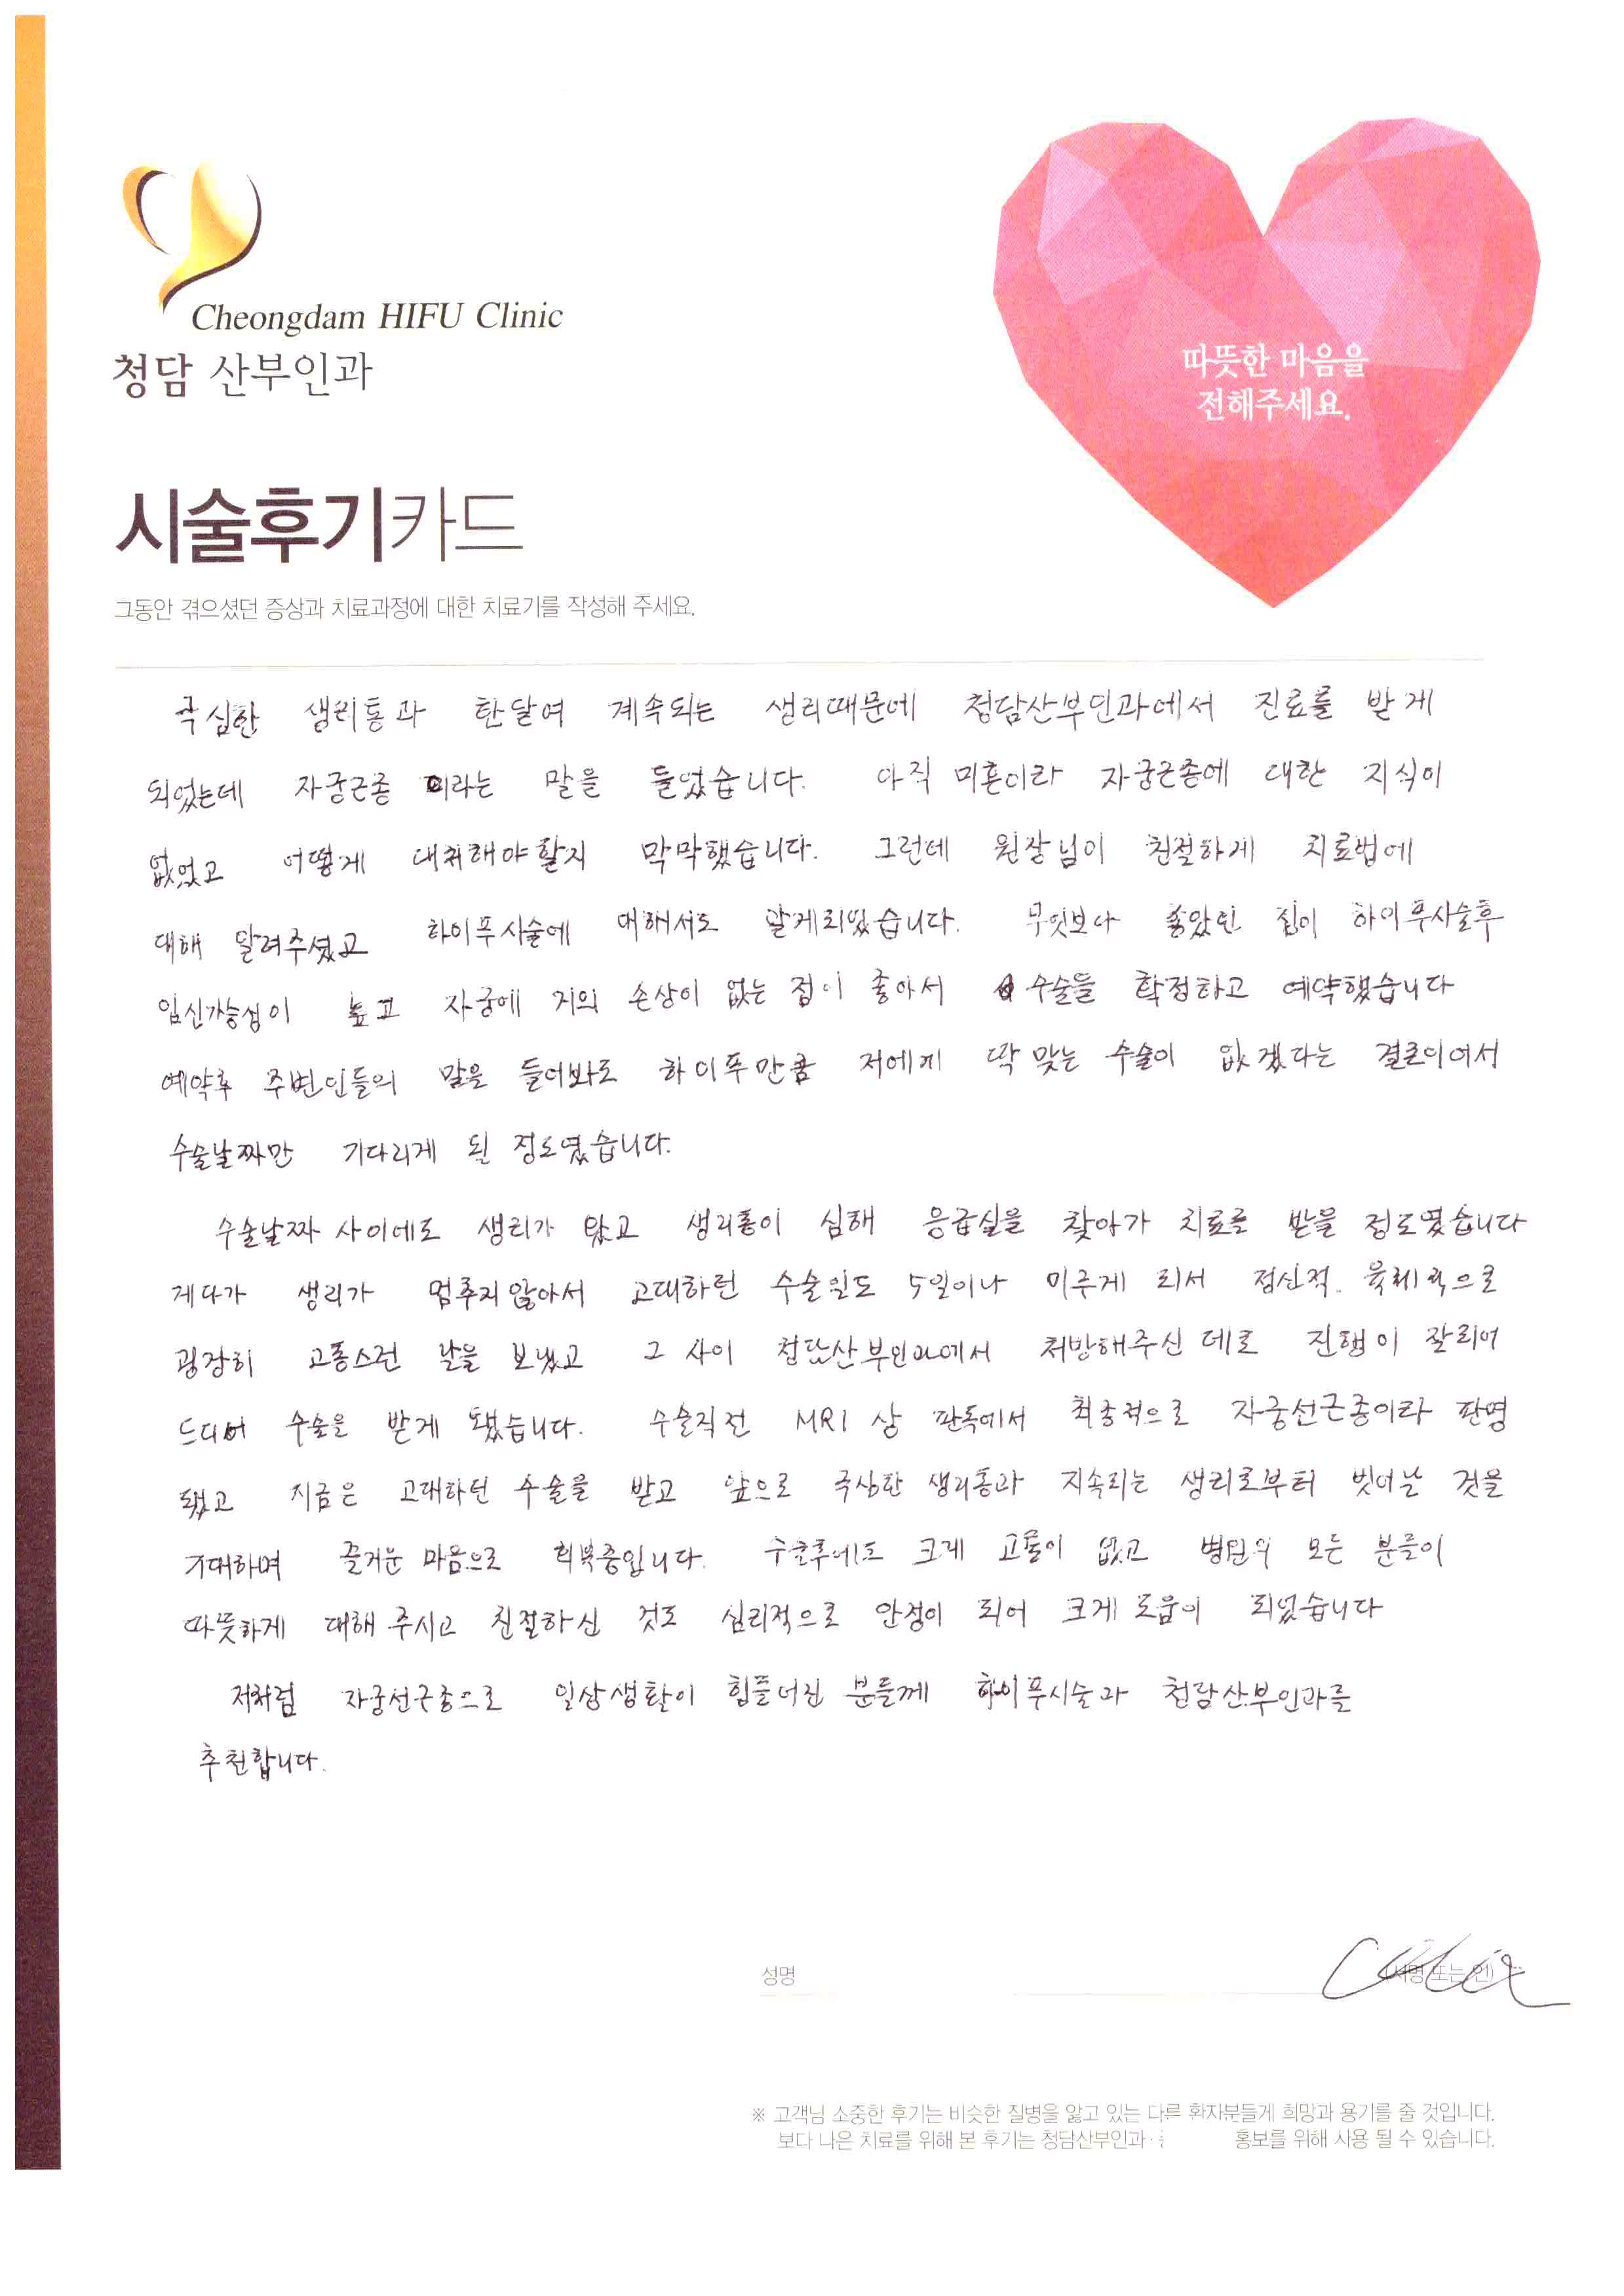 Cheongdam HIFU Clinic
청담 산부인과
따뜻한 마음을
전해주세요.
시술후기카드
그동안 겪으셨던 증상과 치료과정에 대한 치료기를 작성해 주세요.
극심한 생리통과 한달여 계속되는 생리때문에 청담산부인과에서 진료를 받게
되었는데 자궁근종 이라는 말을 들었습니다. 아직 미혼이라 자궁근종에 대한 지식이
없었고 어떻게 대처해야할지 막막했습니다. 그런데 원장님이 친절하게 치료법에
대해 알려주셨고 하이푸시술에 대해서도 알게되었습니다. 무엇보다 좋았던 점이 하이푸시술후
임신가능성이 높고 자궁에 거의 손상이 없는 점이 좋아서 수술을 확정하고 예약했습니다
예약후 주변인들의 말을 들어봐도 하이푸만큼 저에게 딱 맞는 수술이 없겠다는 결론이어서
수술날짜만 기다리게 된 정도였습니다.
수술날짜 사이에도 생리가 왔고 생리통이 심해 응급실을 찾아가 치료를 받을 정도였습니다
게다가 생리가 멈추지않아서 고대하던 수술일도 5일이나 미루게 되서 정신적. 육체적으로
굉장히 고통스런 날을 보냈고 그 사이 청담산부인과에서 처방해주신 데로 진행이 잘되어
드디어 수술을 받게 됐습니다. 수술직전 MRI 상 판독에서 최종적으로 자궁선근종이라 판명
됐고 지금은 고대하던 수술을 받고 앞으로 극심한 생리통과 지속되는 생리로부터 벗어날 것을
기대하며 즐거운 마음으로 회복중입니다. 수술후에도 크게 고통이 없고 병원의 모든 분들이
따뜻하게 대해 주시고 친절하신 것도 심리적으로 안정이 되어 크게 도움이 되었습니다
저처럼 자궁선근종으로 일상생활이 힘들어진 분들께 하이푸시술과 청담산부인과를
추천합니다.
성명 (서명 또는 인)
※ 고객님 소중한 후기는 비슷한 질병을 앓고 있는 다른 환자분들게 희망과 용기를 줄 것입니다.
보다 나은 치료를 위해 본 후기는 청담산부인과· 홍보를 위해 사용 될 수 있습니다.